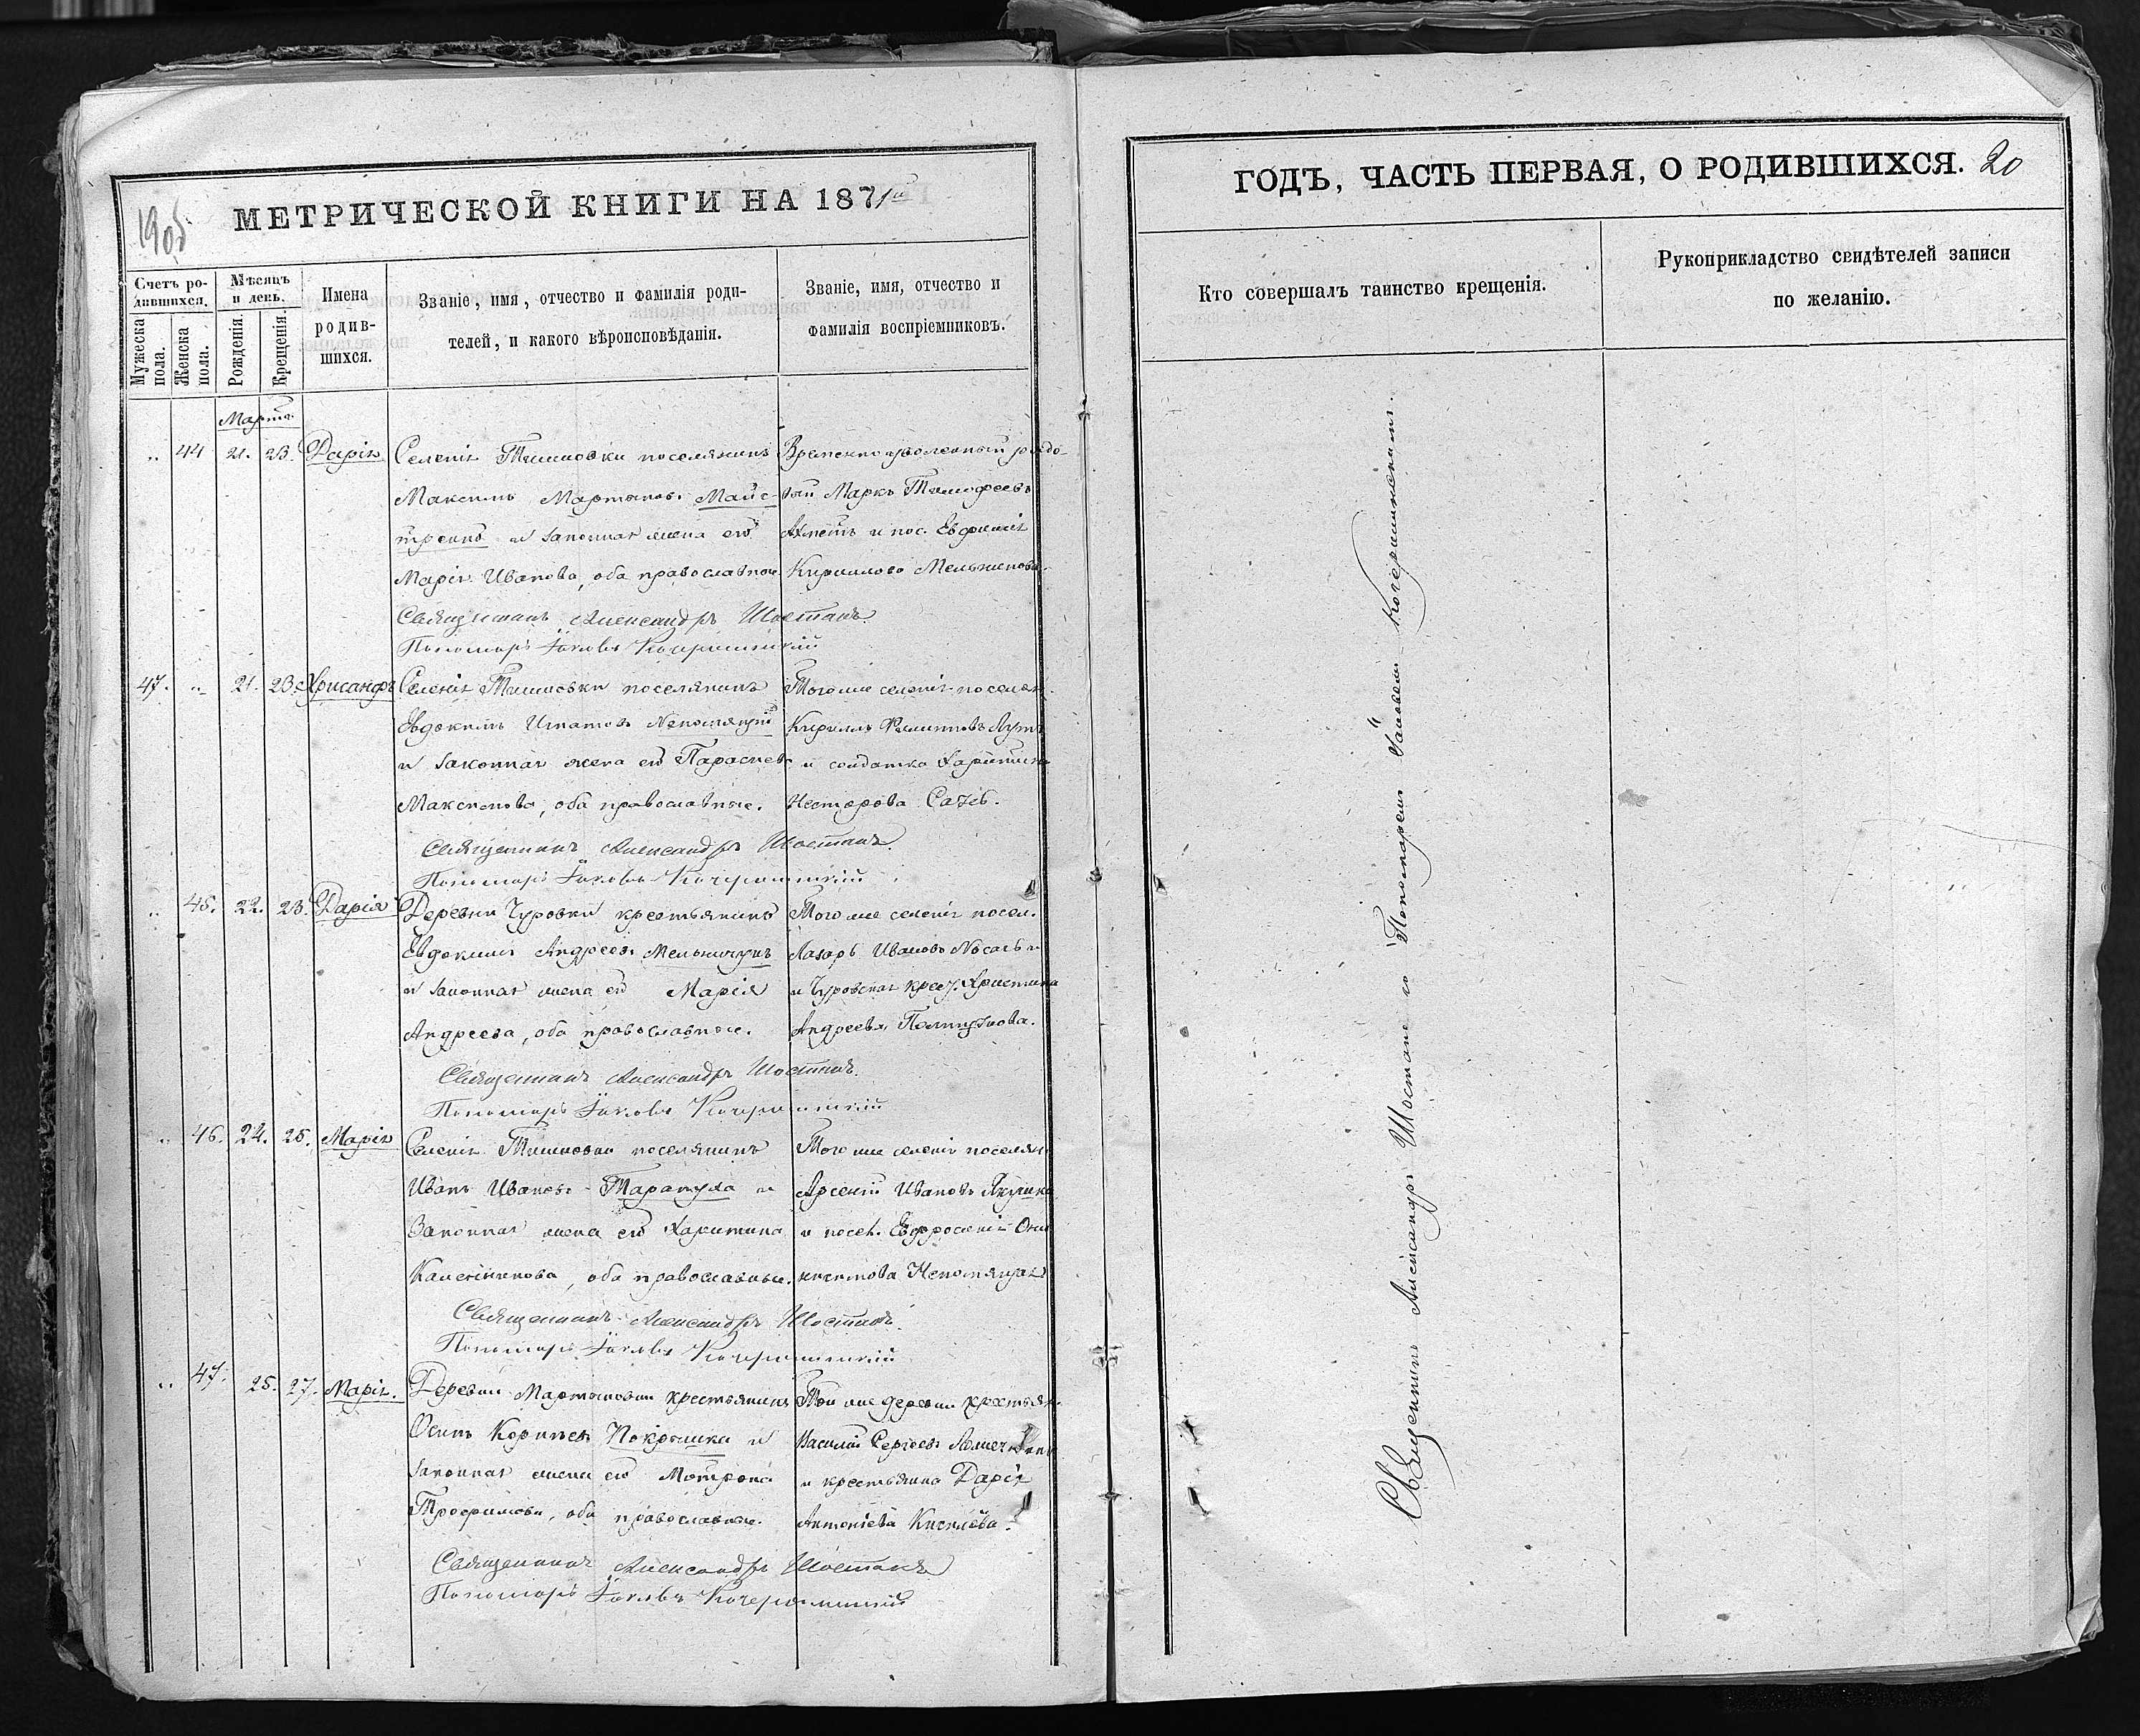 МЕТРИЧЕСКОЙ КНИГИ НА 1871й
Счетъ ро-
дившихся.
Мужеска
пола.
Женска
пола.
Мѣсяцъ
и день.
Рожденія.
Крещенія.
Имена
родив-
шихся.
Званіе, имя, отчество и фамилія роди-
телей, и какого вѣроисповѣданія.
Званіе, имя, отчество и
фамилія воспріемниковъ.
Марта
„ 44 21. 23. Дарія
Селенія Тишковки поселянинъ
Максимъ Мартыновъ Майс-
тренко и законная жена его
Марія Иванова, оба православные
Маркъ Тимофеевъ
и пос. Евфимія
Кириллова Мельникова
Священникъ Александръ Шостакъ
Пономарь Іаковъ Кочержинскій
47. „ 21. 23. Хрисанфъ
Селенія Тишковки поселянинъ
Евдокимъ Игнатовъ Непомящій
и законная жена его Параскева
Максимова, оба православные.
Того же селенія поселян.
Кириллъ Филиповъ
и солдатка Харитина
Несторова
Священникъ Александръ Шостакъ.
Пономарь Іаковъ Кочержинскій
„ 45. 22. 23. Дарія
Деревни Чуровки крестьянинъ
Евдокимъ Андреевъ Мельничукъ
и законная жена его Марія
Андреева, оба православные.
Того же селенія посел.
Лазарь Ивановъ Носачъ
и Чуровская крест. Христина
Андреева
Священникъ Александръ Шостакъ.
Пономарь Іаковъ Кочержинскій
„ 46. 24. 25. Марія
Селенія Тишковки поселянинъ
Иванъ Ивановъ Тарапука и
Законная жена его Харитина
оба православные.
Того же селенія поселян.
Арсеній Ивановъ
и посел. Евфросинія
Непомящая
Священникъ Александръ Шостакъ.
Пономарь Іаковъ Кочержинскій
„ 47. 25. 27. Марія.
Деревни Мартыновки крестьянинъ
Осипъ Корніевъ Покрышка и
законная жена его Мотрона
Трофимова, оба православные.
Той же деревни крестьян.
Василій Сергѣевъ
и крестьянка Дарія
Антоніева Киселева.
Священникъ Александръ Шостакъ
Пономарь Іаковъ Кочержинскій
ГОДЪ, ЧАСТЬ ПЕРВАЯ, О РОДИВШИХСЯ. 20
Кто совершалъ таинство крещенія.
Рукоприкладство свидѣтелей записи
по желанію.
Священникъ Александръ Шостакъ съ Пономаремъ Іаковомъ Кочержинскимъ.